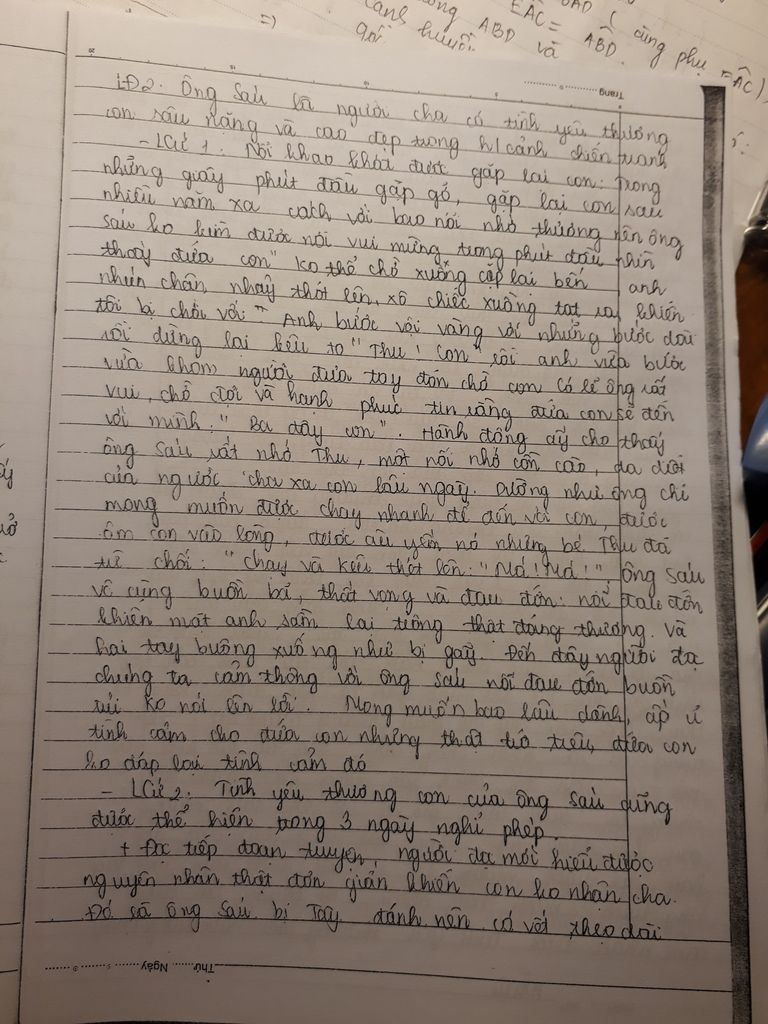 =>
OAD ( cùng phụ
ÊAC = ABD.
ABD và
cạnh huyền
góc
ÂC)
Trang
LĐ2. Ông Sáu là người cha có tình yêu thương
con sâu nặng và cao đẹp trong h/cảnh chiến tranh
- LCứ 1: Nỗi khao khát được gặp lại con: trong
những giây phút đầu gặp gỡ, gặp lại con sau
nhiều năm xa cách với bao nỗi nhớ thương nên ông
sáu ko kìm được nỗi vui mừng trong phút đầu nhìn
thấy đứa con " ko thể chờ xuồng cặp lại bến anh
nhún chân nhảy thót lên, xô chiếc xuồng tạt ra, khiến
tôi bị chới với " Anh bước vội vàng với những bước dài
rồi dừng lại kêu to " Thu ! Con ", rồi anh vừa bước
vừa khom người đưa tay đón chờ con Có lẽ ông rất
vui, chờ đợi và hạnh phúc tin rằng đứa con sẽ đến
với mình: " Ba đây con ". Hành động ấy cho thấy
ông Sáu rất nhớ Thu, một nỗi nhớ cồn cào, da diết
của người cha xa con lâu ngày. Dường như ông chỉ
mong muốn được chạy nhanh để đến với con, được
ôm con vào lòng, được âu yếm nó nhưng bé Thu đã
từ chối: " chạy và kêu thét lên: " Má ! Má ! ", ông Sáu
vô cùng buồn bã, thất vọng và đau đớn: nỗi đau đớn
khiến mặt anh sầm lại trông thật đáng thương. Và
hai tay buông xuống như bị gãy. Đến đây người đọc
chúng ta cảm thông với ông Sáu nỗi đau đớn buồn
tủi ko nói lên lời. Mong muốn bao lâu dành, ấp ủ
tình cảm cho đứa con nhưng thật trớ trêu, đứa con
ko đáp lại tình cảm đó
- LCứ 2. Tình yêu thương con của ông Sáu cũng
được thể hiện trong 3 ngày nghỉ phép.
+ Đọc tiếp đoạn truyện, người đọc mới hiểu được
nguyên nhân thật đơn giản khiến con ko nhận cha.
Đó là ông Sáu bị Tây đánh nên có vết thẹo dài
Thứ Ngày